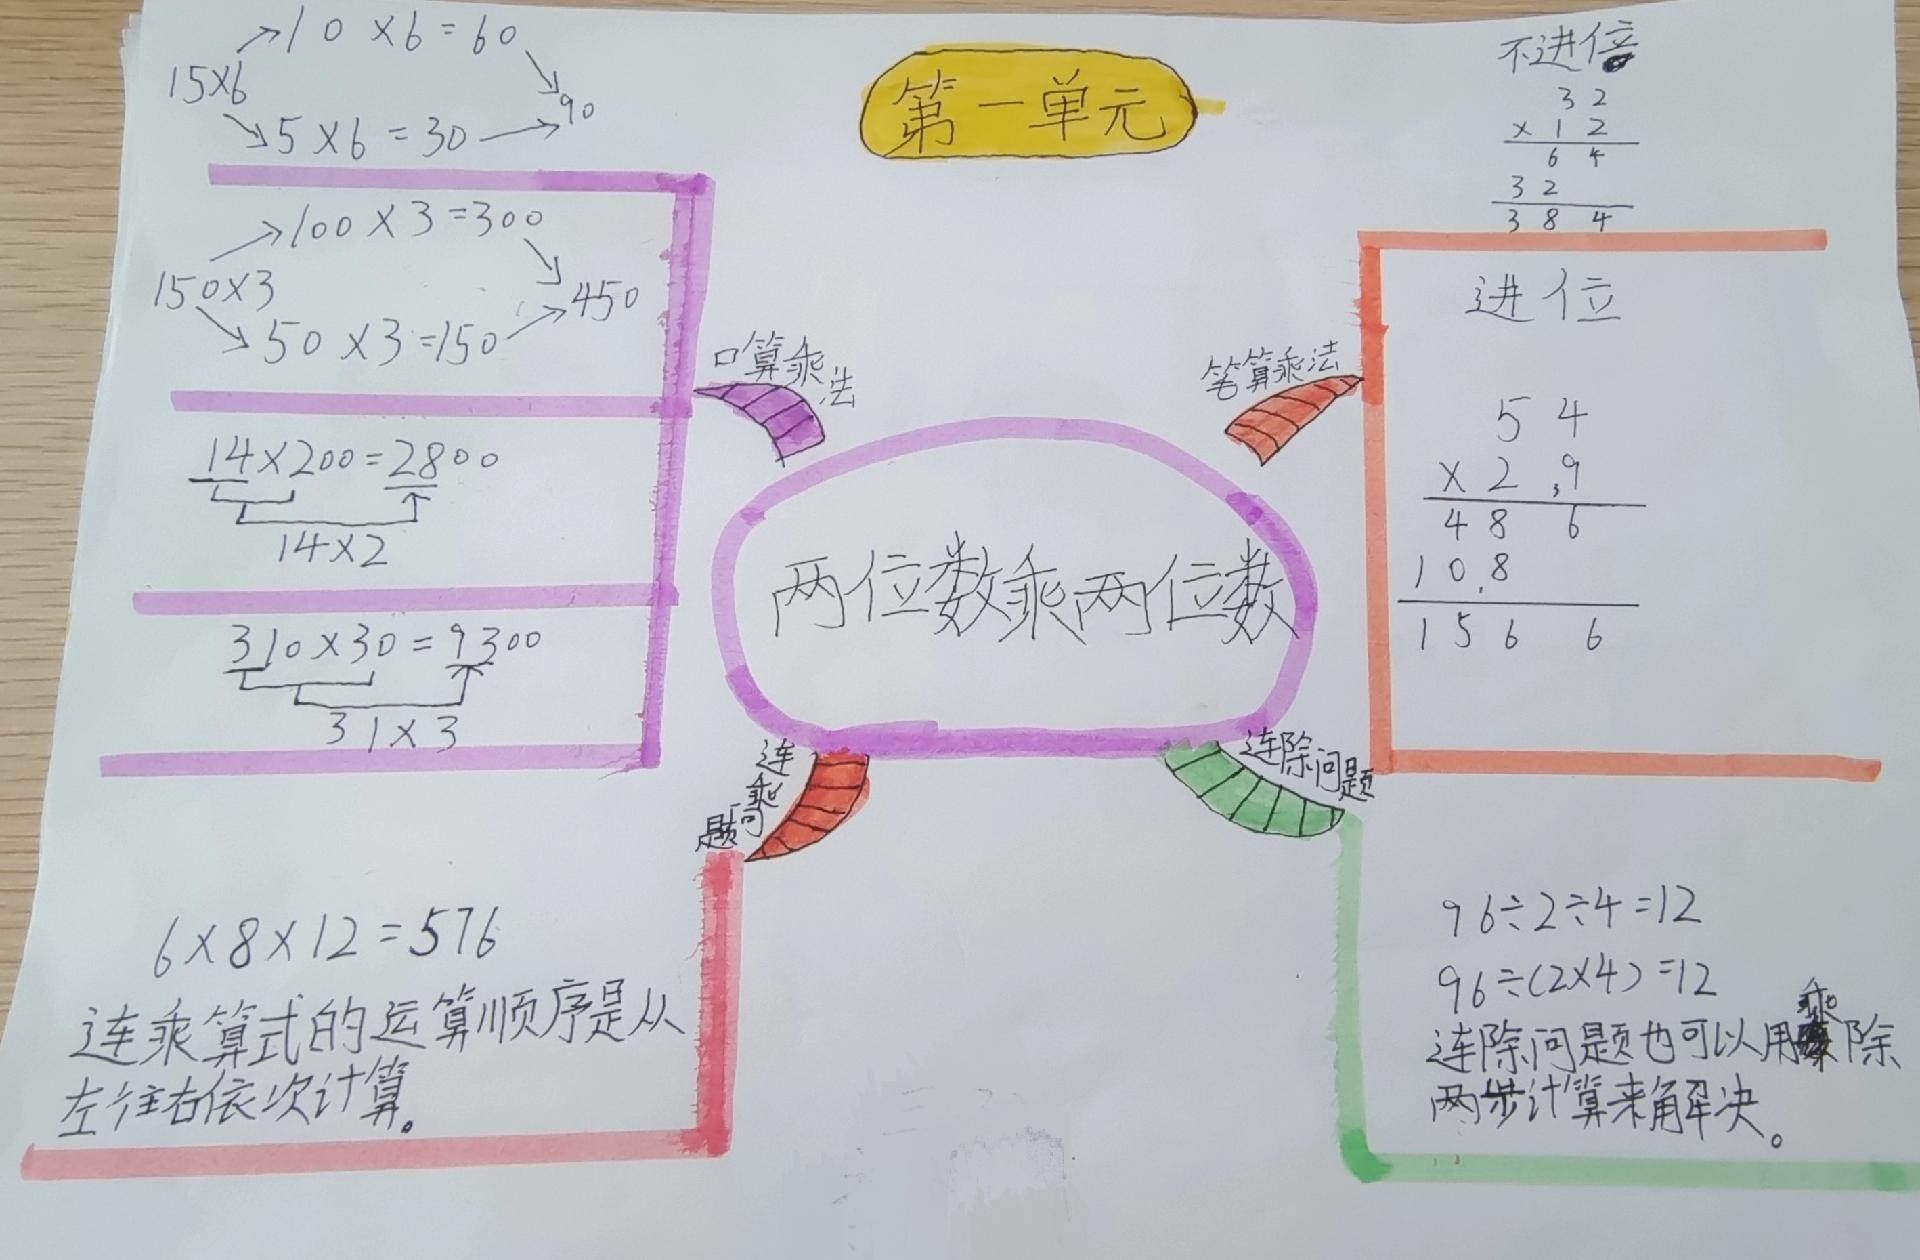 第一单元
10×6=60
15×6
90
5×6=30
100×3=300
150×3
450
50×3=150
14×200=2800
14×2
310×30=9300
31×3
口算乘法
不进位
32
×12
64
32
384
进位
54
×29
486
108
1566
笔算乘法
两位数乘两位数
连乘问题
6×8×12=576
连乘算式的运算顺序是从
左往右依次计算。
连除问题
96÷2÷4=12
96÷(2×4)=12
连除问题也可以用乘除
两步计算来解决。